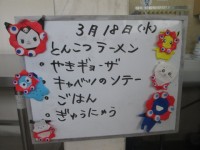 3月18日(水)
とんこつラーメン
やきギョーザ
キャベツのソテー
ごはん
ぎゅうにゅう